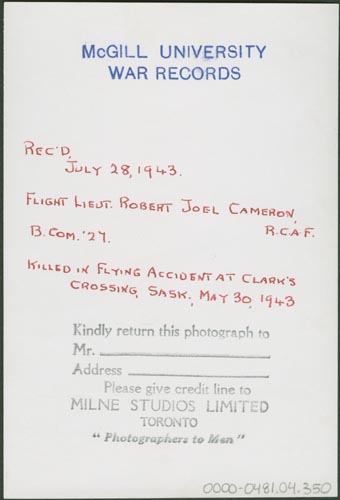 McGILL UNIVERSITY
WAR RECORDS
REC'D,
JULY 28, 1943.
FLIGHT LIEUT. ROBERT JOEL CAMERON,
R.C.A.F.
B.COM. '27.
KILLED IN FLYING ACCIDENT AT CLARK'S
CROSSING, SASK., MAY 30, 1943
Kindly return this photograph to
Mr.
Address
Please give credit line to
MILNE STUDIOS LIMITED
TORONTO
"Photographers to Men"
0000-0481.04.350